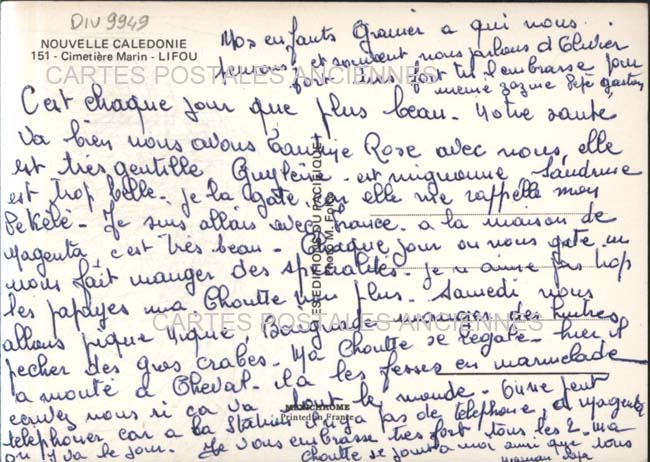 DIV 9949
NOUVELLE CALEDONIE
151 - Cimetière Marin - LIFOU
CARTES POSTALES ANCIENNES
Mes enfants Granier a qui nous
pensons et souvent nous parlons d'Olivier
fort très fort tu l'embrasse pour
meme zazine Pépé gaston
C'est chaque jour que plus beau. Notre santé
va bien nous avons Rose avec nous, elle
est très gentille Guylène est mignonne Sandrine
est trop belle. je la gate, elle me rappelle mon
Pékélé. Je suis allais avec France. a la maison de
Magenta, c'est très beau. Chaque jour on nous gate, on
nous fait manger des spécialités. je n'aime pas trop
les papayes ma Choutte non plus. Samedi nous
allons pique niqué, Bourgade manger des huitres
CARTES POSTALES ANCIENNES
pecher des gros crabes. Ma Choutte se régale. hier il
a monté a Cheval. il a les fesses en marmelade
écrivez nous si ça va tout le monde. On ne peut
téléphoner car a la Station il y a pas de telephone, a Magenta
on y va le jour. Je vous embrasse très fort tous les 2. ma
Choutte se joint a moi ainsi que tous
LES EDITIONS DU PACIFIQUE
Photo M. Folco
MEXICHROME
Printed in France